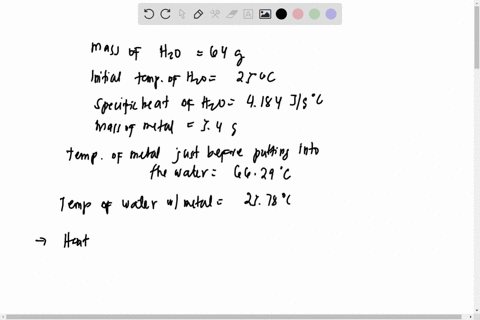 mass of H2O = 64 g
Initial temp. of H2O = 25°C
Specific heat of H2O = 4.184 J/g°C
mass of metal = 5.4 g
Temp. of metal just before putting into
the water = 66.29°C
Temp of water w/ metal = 25.78°C
→ Heat